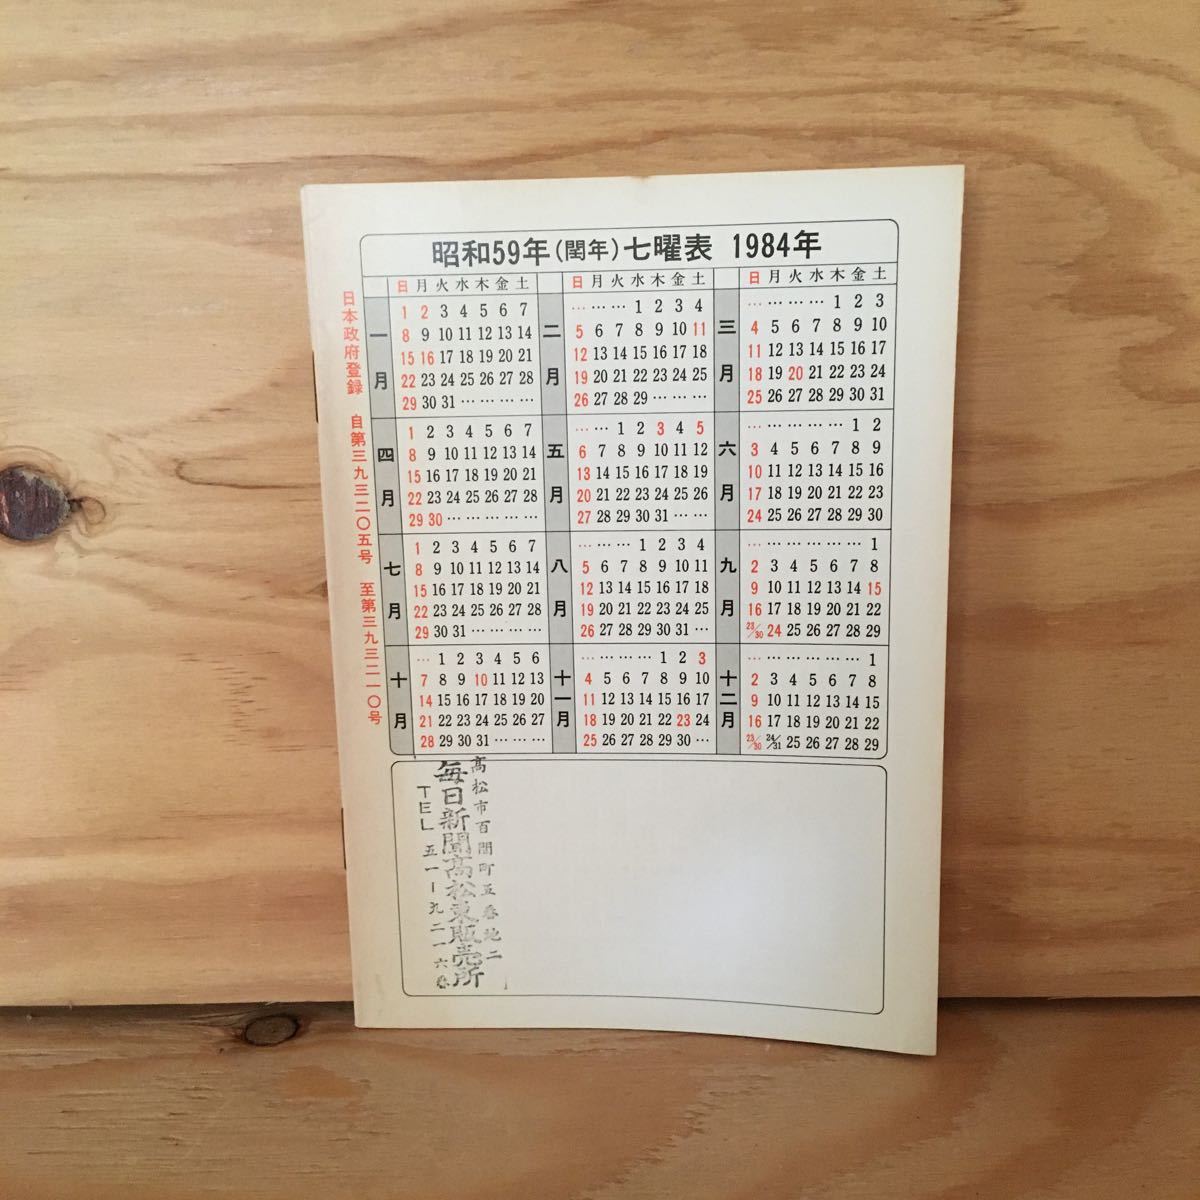 昭和59年(閏年)七曜表 1984年
日本政府登録 自第三九三二〇五号 至第三九三二一〇号
日 月 火 水 木 金 土
一月
1 2 3 4 5 6 7
8 9 10 11 12 13 14
15 16 17 18 19 20 21
22 23 24 25 26 27 28
29 30 31 … … … …
日 月 火 水 木 金 土
二月
… … … 1 2 3 4
5 6 7 8 9 10 11
12 13 14 15 16 17 18
19 20 21 22 23 24 25
26 27 28 29 … … …
日 月 火 水 木 金 土
三月
… … … … 1 2 3
4 5 6 7 8 9 10
11 12 13 14 15 16 17
18 19 20 21 22 23 24
25 26 27 28 29 30 31
四月
1 2 3 4 5 6 7
8 9 10 11 12 13 14
15 16 17 18 19 20 21
22 23 24 25 26 27 28
29 30 … … … … …
五月
… … 1 2 3 4 5
6 7 8 9 10 11 12
13 14 15 16 17 18 19
20 21 22 23 24 25 26
27 28 29 30 31 … …
六月
… … … … … 1 2
3 4 5 6 7 8 9
10 11 12 13 14 15 16
17 18 19 20 21 22 23
24 25 26 27 28 29 30
七月
1 2 3 4 5 6 7
8 9 10 11 12 13 14
15 16 17 18 19 20 21
22 23 24 25 26 27 28
29 30 31 … … … …
八月
… … … 1 2 3 4
5 6 7 8 9 10 11
12 13 14 15 16 17 18
19 20 21 22 23 24 25
26 27 28 29 30 31 …
九月
… … … … … … 1
2 3 4 5 6 7 8
9 10 11 12 13 14 15
16 17 18 19 20 21 22
23/30 24 25 26 27 28 29
十月
… 1 2 3 4 5 6
7 8 9 10 11 12 13
14 15 16 17 18 19 20
21 22 23 24 25 26 27
28 29 30 31 … … …
十一月
… … … … 1 2 3
4 5 6 7 8 9 10
11 12 13 14 15 16 17
18 19 20 21 22 23 24
25 26 27 28 29 30 …
十二月
… … … … … … 1
2 3 4 5 6 7 8
9 10 11 12 13 14 15
16 17 18 19 20 21 22
23/30 24/31 25 26 27 28 29
高松市百間町五番地二
毎日新聞高松東販売所
TEL五一ー九二一六番